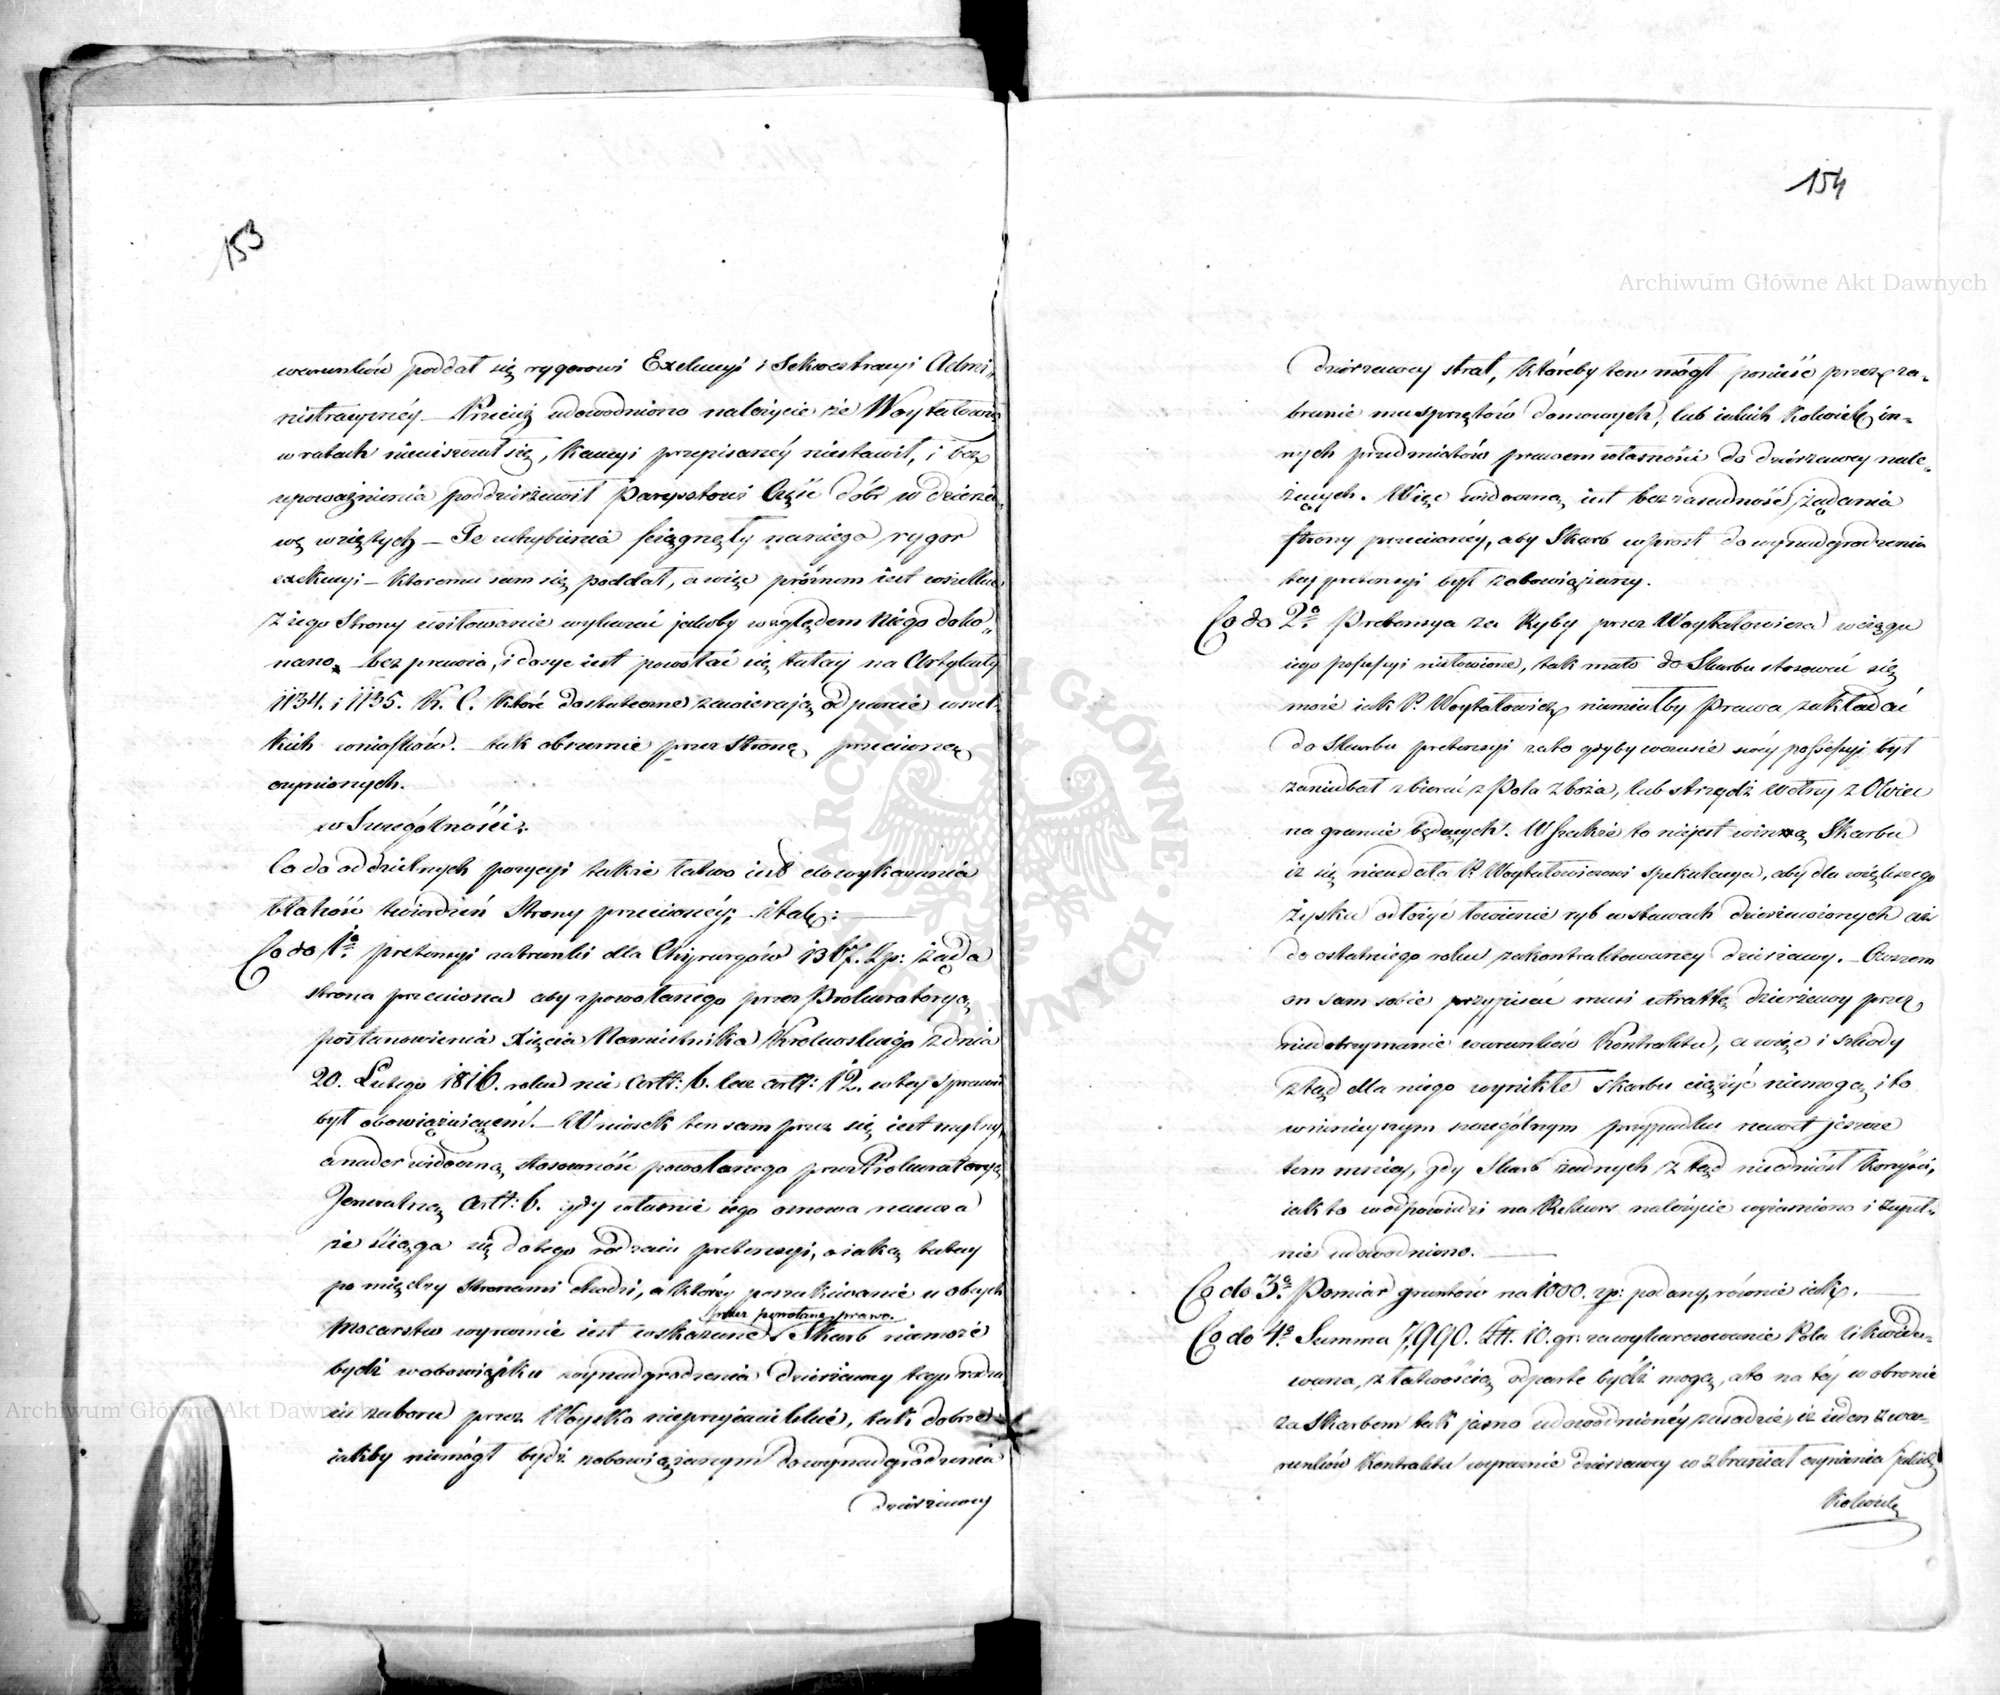 153
warunków poddał się rygorowi Exekucyi i Sekwestracyi Admi„
nistracyinéy – Przecież udowodniono należycie że Woytatowicz
w ratach nieuiszczał się, Kaucyi przepisanéy niestawił, i bez
upoważnienia poddzierżawił Parysatowi Część dóbr w dzierża
wę wziętych – Te uchybienia ściągnęły naniego rygor
exekucyi – któremu sam się poddał, a więc próżnem iest wszelkie
z iego Strony usiłowanie wykazać jakoby względem niego doko„
nano bez prawia, i dosyc iest powołać się tutay na Artykuły
1134. i 1135. K. C. które dostatecznie zawieraią odparcie wszel„
kich wniosków – tak obszernie przez Stronę przeciwną
czynionych.
w Szczególności.
Co do oddzielnych pozycyi także łatwo iest do wykazania
błahość twierdzeń Strony przeciwnéy; i tak: –
Co do 1º pretensyi za trunki dla Chirurgów 1367. Zp: żąda
strona przeciwna aby z powołanego przez Prokuratoryą
postanowienia Xięcia Namiestnika Królewskiego z dnia
20. Lutego 1816. roku nie artt: 6. lecz artt: 12. w tey sprawie
był obowiązuiącem. – Wniosek ten sam przez się iest mylny,
a nader widoczną stosowność powołanego przez Prokuratoryą
Jeneralną artt: 6. gdy właśnie iego osnowa naucza
że ściąga się do tego rodzaiu pretensyi, o iaką tutay
pomiędzy stronami chodzi, a któréy poszukiwanie u obcych
przez powołane prawo.
Mocarstw wyraźnie iest wskazane Skarb niemoże
bydź w obowiązku wynadgrodzenia dzierżawcy tego rodza„
iu zaboru przez Woysko nieprzyiacielskie, tak dobrze
iakby niemógł bydź zobowiązanym do wynadgrodzenia
dzierżawcy
154
dzierżawcy strat, któreby ten mógł ponieść przez za„
branie mu sprzętów domowych, lub iakich kolwiek in„
nych przedmiotów prawem własności do dzierżawcy nale„
żących. Więc widoczną iest bezzasadność żądania
strony przeciwnéy, aby Skarb wprost do wynadgrodzenia
tey pretensyi był zobowiązany.
Co do 2º Pretensya za Ryby przez Woytatowicza w ciągu
iego possessyi niełowione, tak mało do Skarbu stosować się
może iak P. Woytatowicz niemiałby prawa zakładać
do Skarbu pretensyi za to gdyby w czasie swéy possessyi był
zaniedbał zbierać z Pola zboża, lub strzydz wełny z Owiec
na gruncie będących. Wszakże to niejest winną Skarbu
iż się nieudała P. Woytatowiczowi spekulacya, aby dla większego
zysku odłożyć łowienie ryb w stawach dzierżawionych aż
do ostatniego roku zakontraktowaney dzierżawy. – Owszem
on sam sobie przypisać musi utratę dzierżawy przez
niedotrzymanie warunków Kontraktu, a więc i szkody
ztąd dla niego wynikłe Skarbu ciążyć niemogą, i to
w ninieyszym szczególnym przypadku nawet jeszcze
tem mniey, gdy Skarb żadnych ztąd nieodniósł korzyści,
iak to w odpowiedzi na Rekurs należycie wyiaśniono i zupeł„
nie udowodniono. –
Co do 3º Pomiar gruntów na 1000. zp: podany, równie iak. –
Co do 4º Summa 7,990. Złł. 10. gr: za wykarczowanie Pola likwido„
wana, z łatwością odparte bydź mogą, a to na téy w obronie
za Skarbem tak jasno udowodnionéy zasadzie, iż ieden z wa„
runków Kontraktu wyraźnie dzierżawcy wzbraniał czynienia jakich
kolwiek